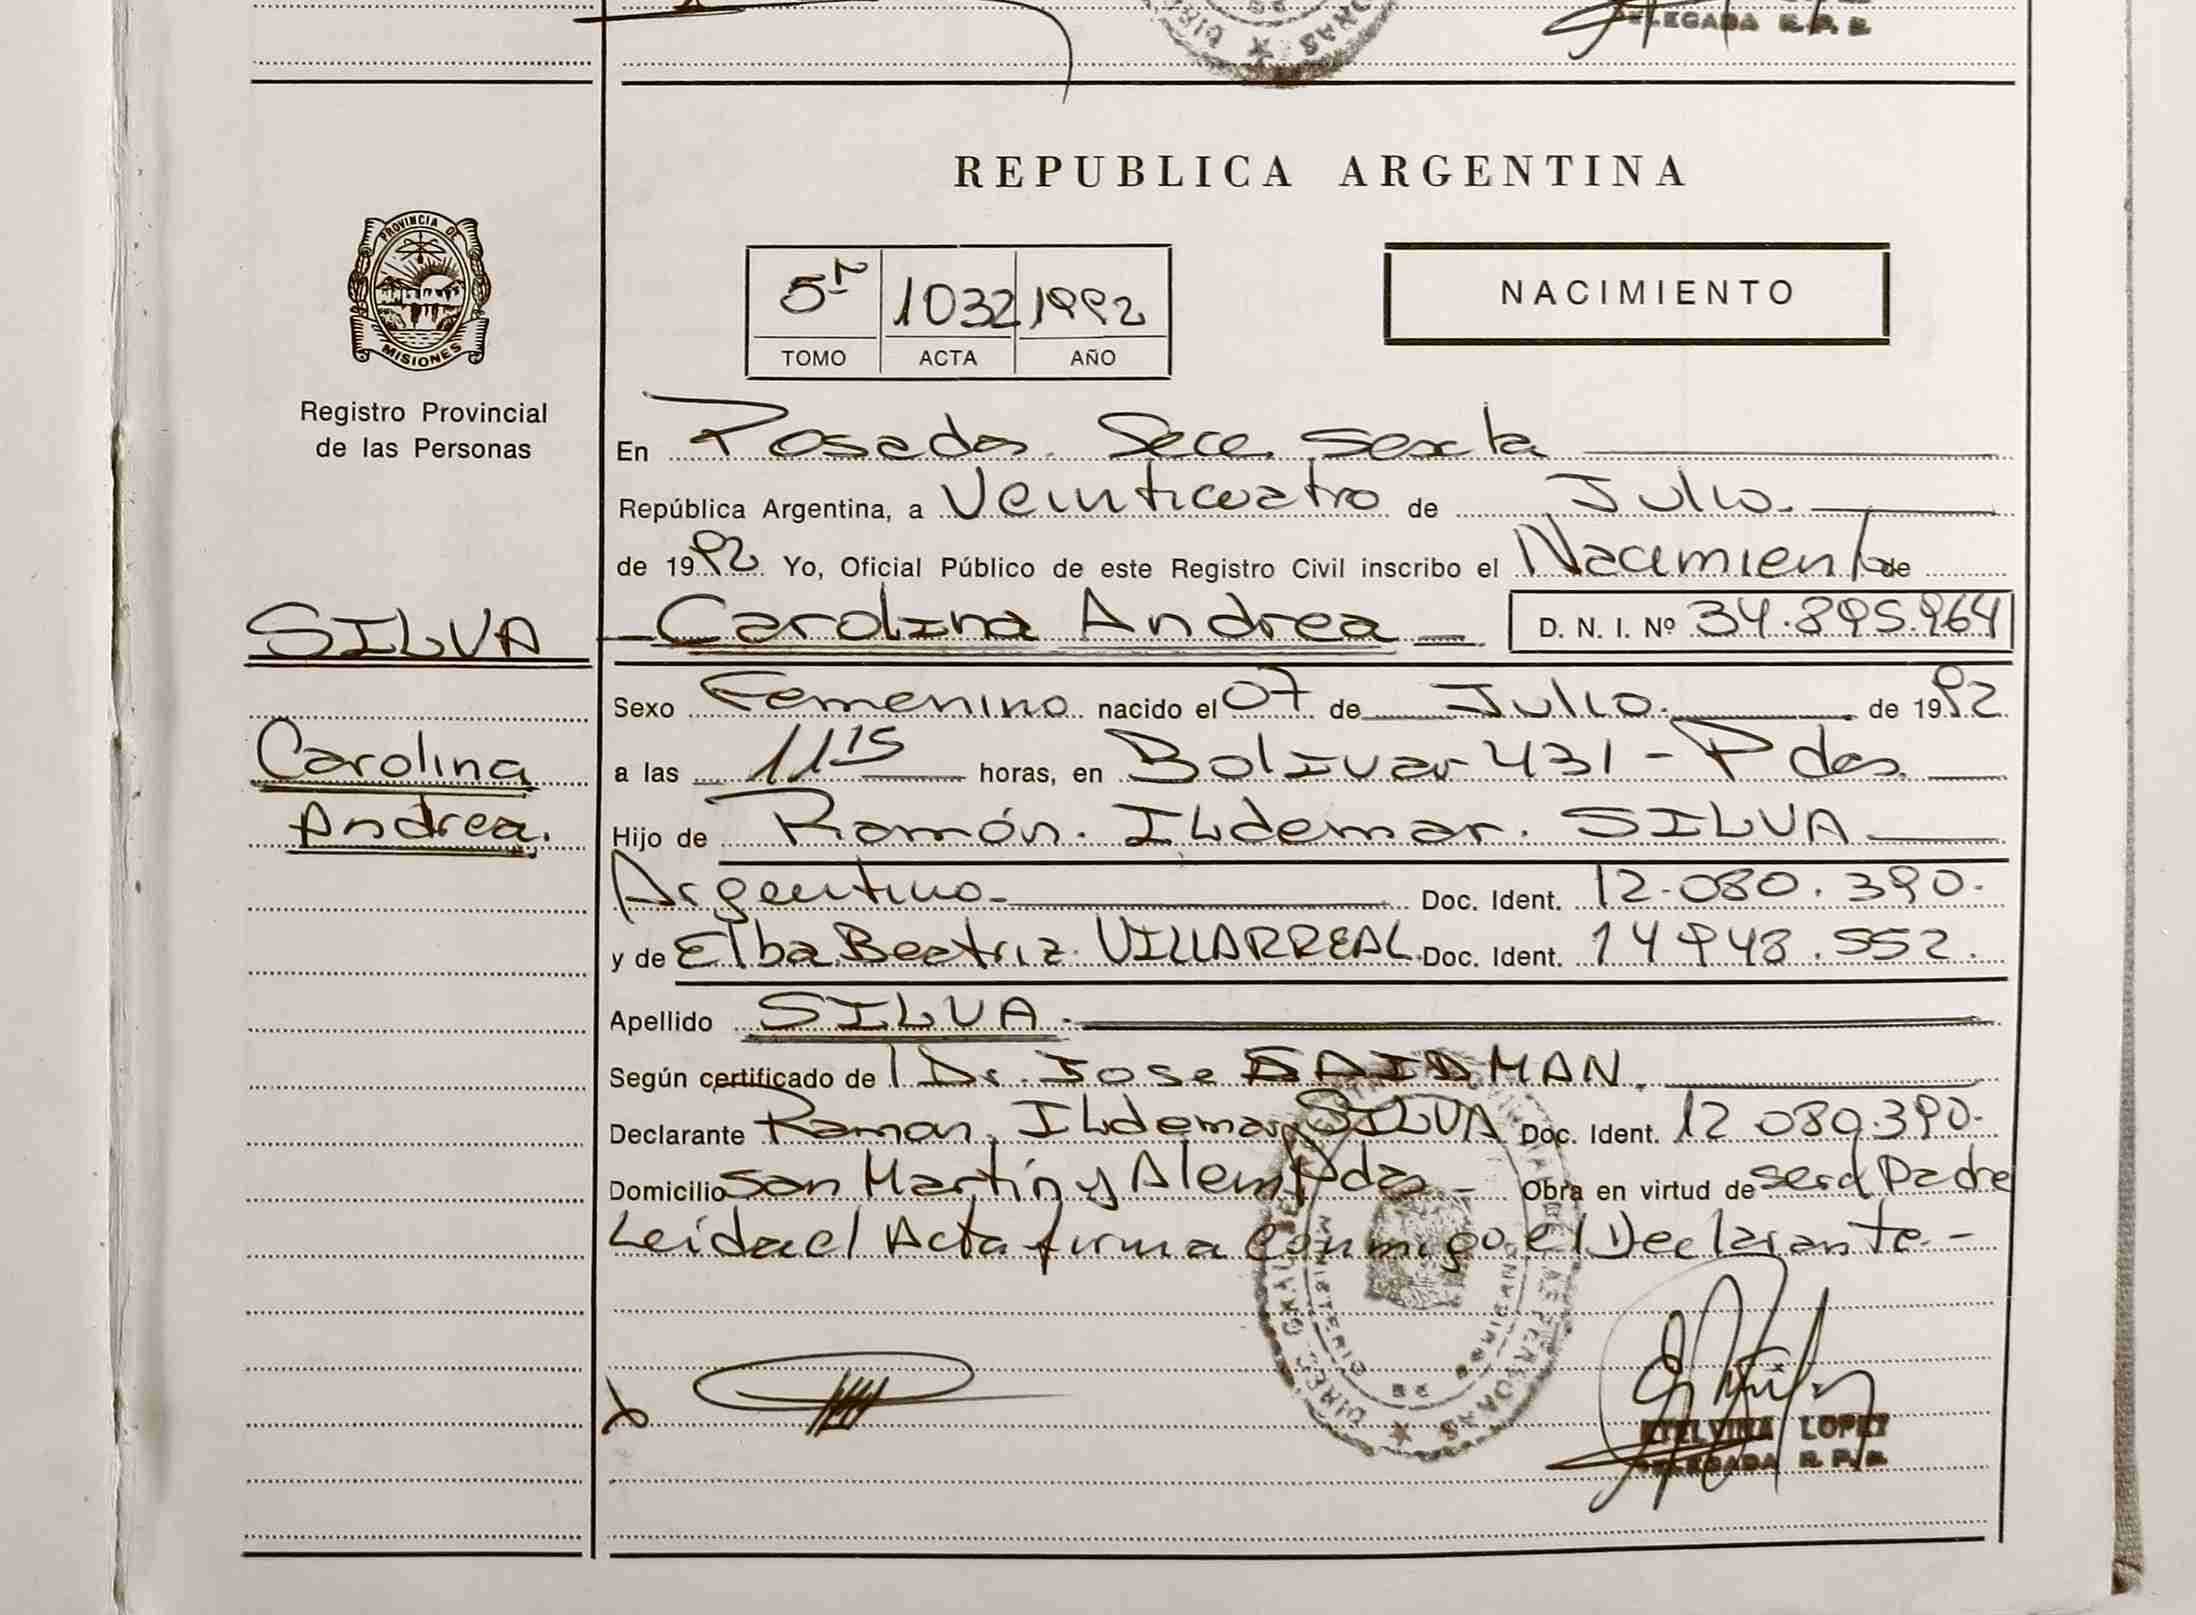 DELEGADA R. P. P.
REPUBLICA ARGENTINA
PROVINCIA DE
MISIONES
Registro Provincial
de las Personas
5º 1032 1992
TOMO ACTA AÑO
NACIMIENTO
En Posadas Secc. sexta
República Argentina, a Veinticuatro de Julio.
de 1992 Yo, Oficial Público de este Registro Civil inscribo el Nacimiento de
SILVA Carolina Andrea D. N. I. Nº 34.895.964
Sexo Femenino nacido el 07 de Julio. de 1992
Carolina a las 11 15 horas, en Bolivar 431 - Pdas.
Andrea. Hijo de Ramón. Ildemar. SILVA
Argentino. Doc. Ident. 12.080.390.
y de Elba Beatriz. VILLARREAL. Doc. Ident. 14948.552.
Apellido SILVA.
Según certificado de l Dr. Jose SAIDMAN.
Declarante Ramon, Ildemar SILVA Doc. Ident. 12 080.390.
Domicilio San Martín y Alem Pdas - Obra en virtud de ser el Padre
Leida el Acta firma Conmigo el Declarante.-
ETELVINA LOPEZ
DELEGADA R. P. P.